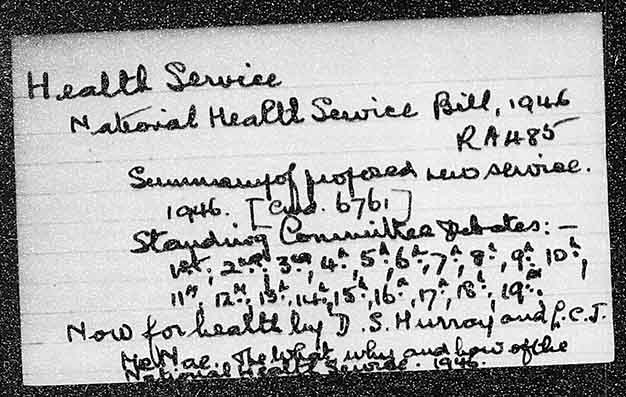 Health Service
National Health Service Bill, 1946
RA485
Summary of proposed new service.
1946. [Cmd. 6761]
Standing Committee Debates: —
1st, 2nd, 3rd, 4th, 5th, 6th, 7th, 8th, 9th, 10th,
11th, 12th, 13th, 14th, 15th, 16th, 17th, 18th, 19th,
Now for health by D. S. Murray and L.C.J.
McNae. The What why and how of the
National Health Service. 1946.